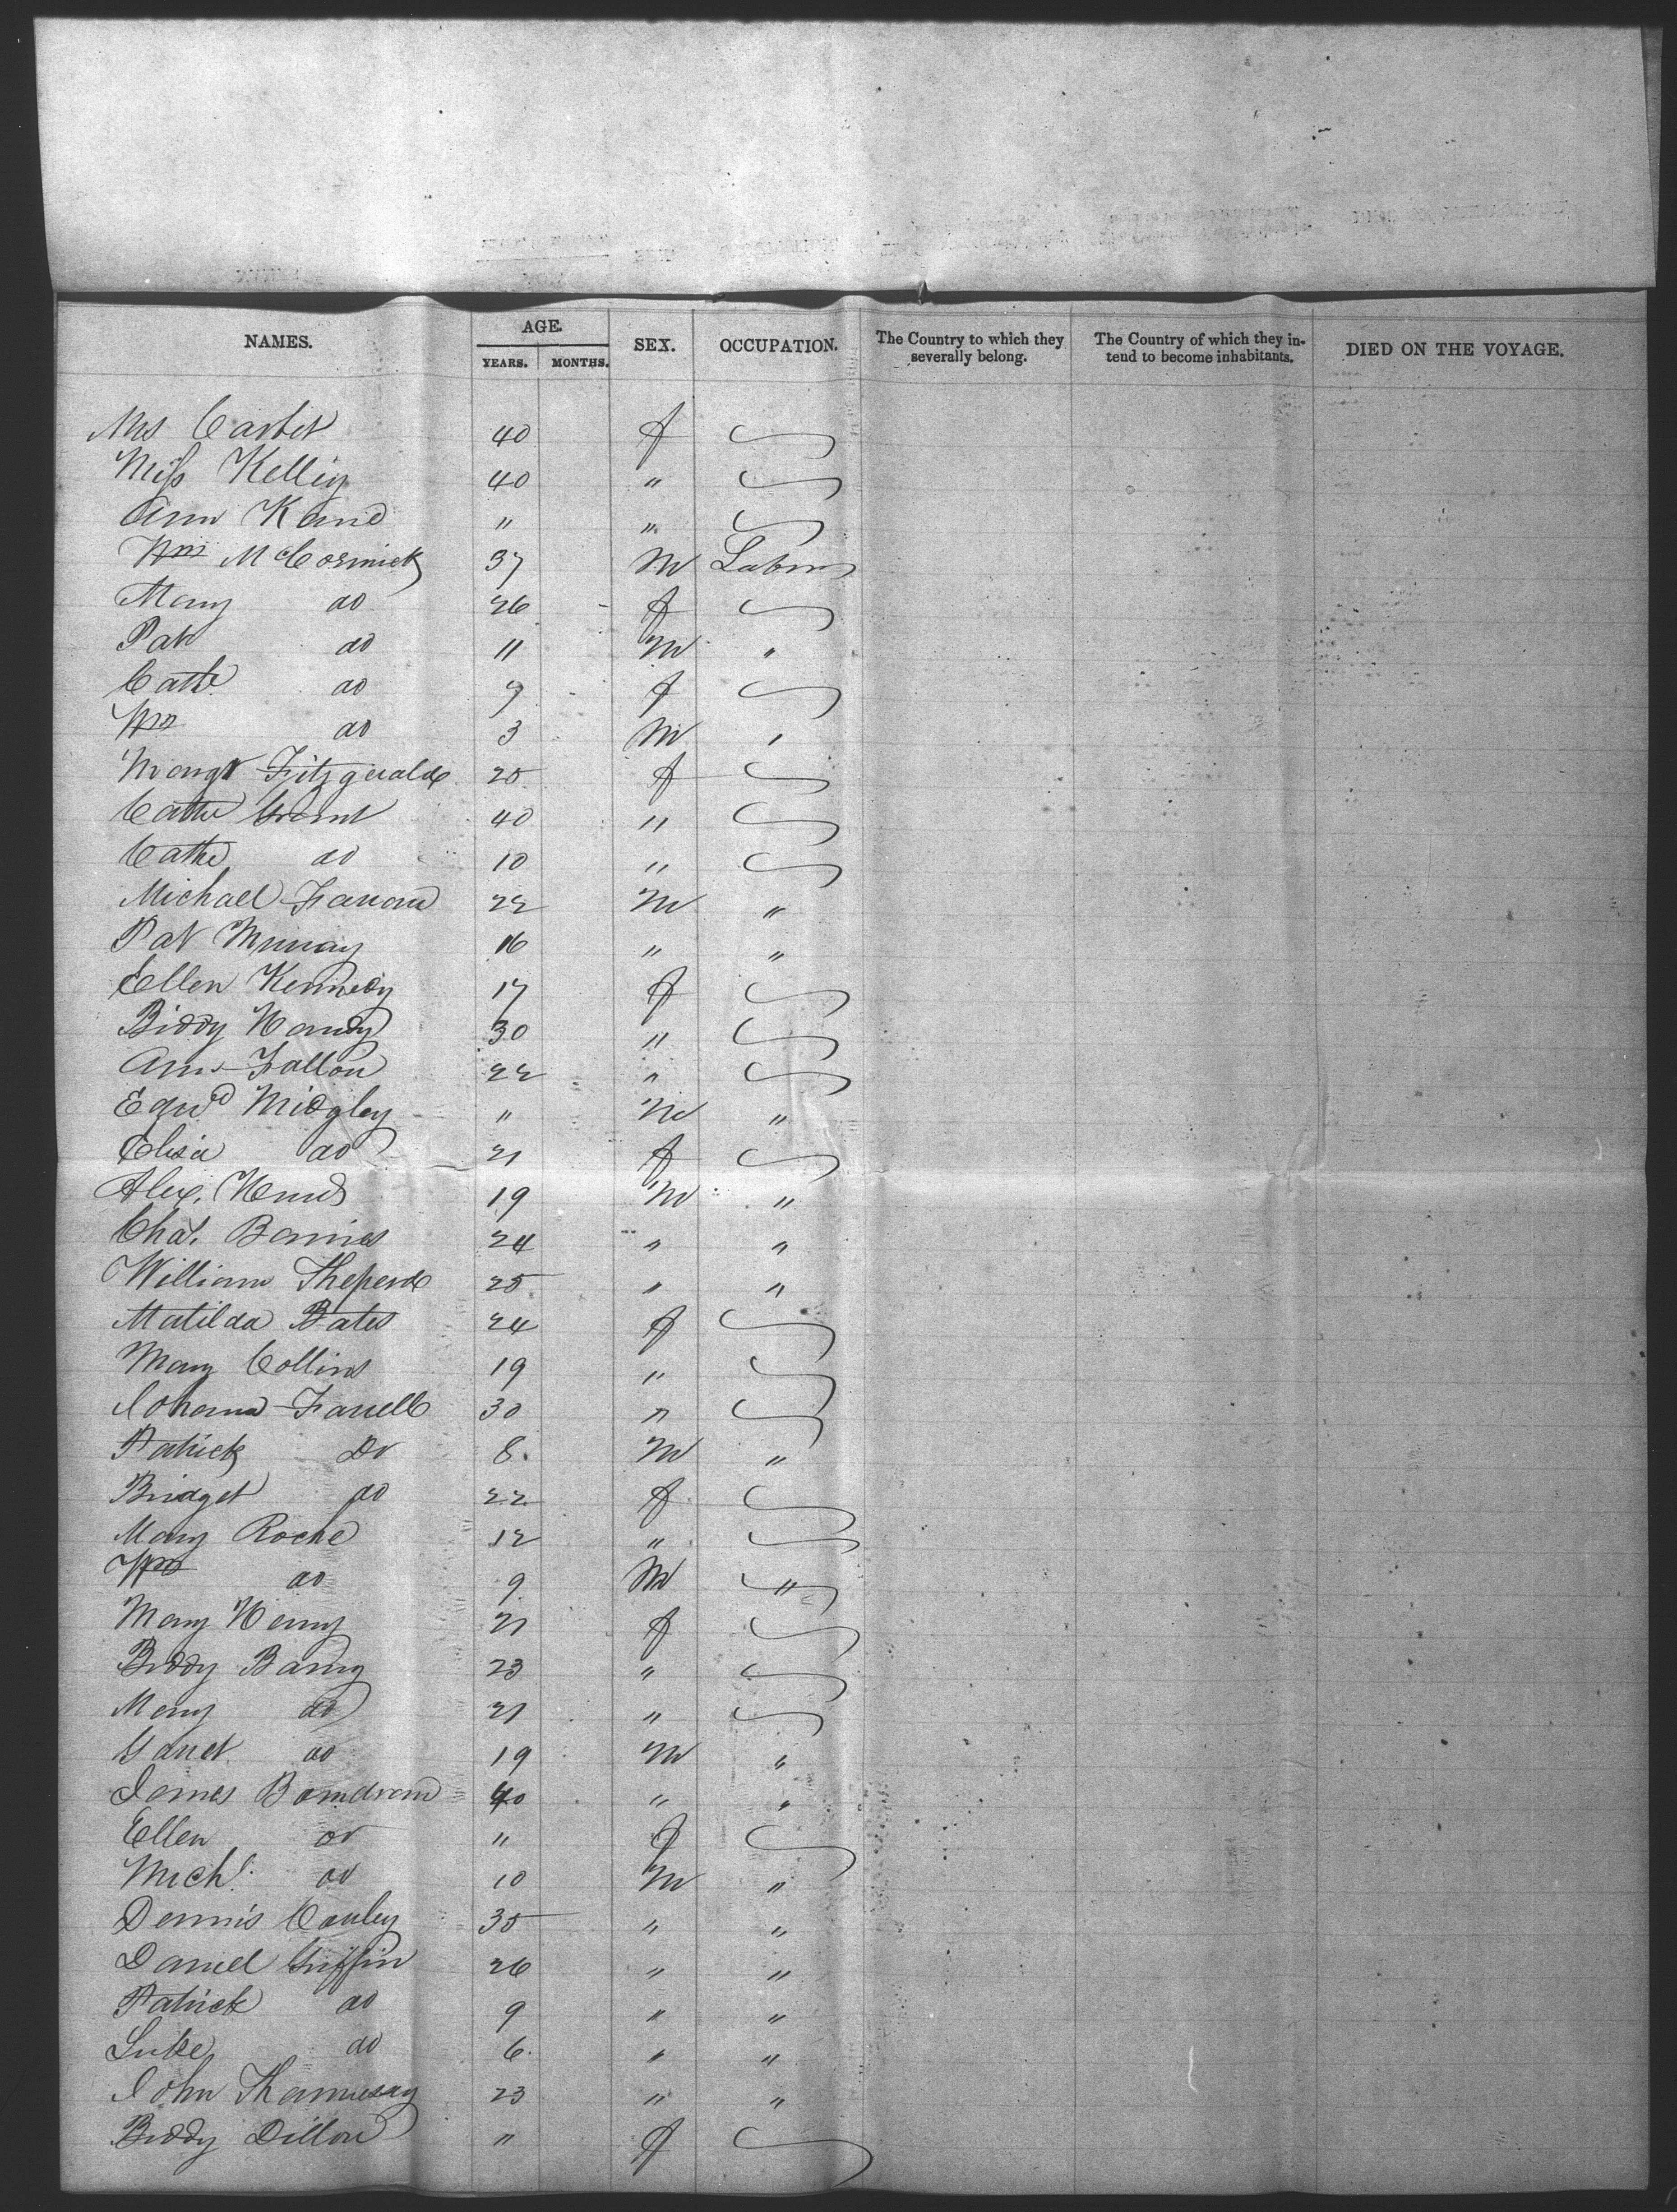 NAMES. AGE. SEX. OCCUPATION. The Country to which they severally belong. The Country of which they intend to become inhabitants. DIED ON THE VOYAGE.
YEARS. MONTHS.
Mrs 40 f
Miss Kelley 40 "
Ann Kane " "
Wm McCormick 37 M Labor
Mary do 26 f
Pat do 11 M "
Cathe do 9 f
Wm do 3 M "
Margt Fitzgerald 25 f
Cathe Grant 40 "
Cathe do 10 "
Michael 22 M "
Pat Murray 16 " "
Ellen Kennedy 17 f
Biddy Handy 30 "
Ann Fallon 22 "
Edwd Midgley " M "
Elisa do 21 f
Alex. 19 M "
Chas. 24 " "
William Sheperd 25 " "
Matilda Bates 24 f
Mary Collins 19 "
Johanna Farrell 30 "
Patrick Do 8 M "
Bridget do 22 f
Mary Roche 12 "
Wm do 9 M "
Mary Henry 21 f
Biddy Barry 23 "
Mary do 21 "
do 19 M "
James 40 " "
Ellen do " f
Michl. do 10 M "
Dennis 35 " "
Daniel Griffin 26 " "
Patrick do 9 " "
Luke do 6 " "
John 23 " "
Biddy Dillon " f